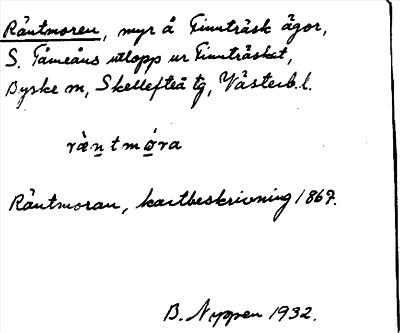 Räntmoren, myr å Finnträsk ägor,
S. Tåmeåns utlopp ur Finnträsket,
Byske sn, Skellefteå tg, Västerb. l.
ràntmóra
Räntmoran, kartbeskrivning 1867.
B. Noppen 1932.